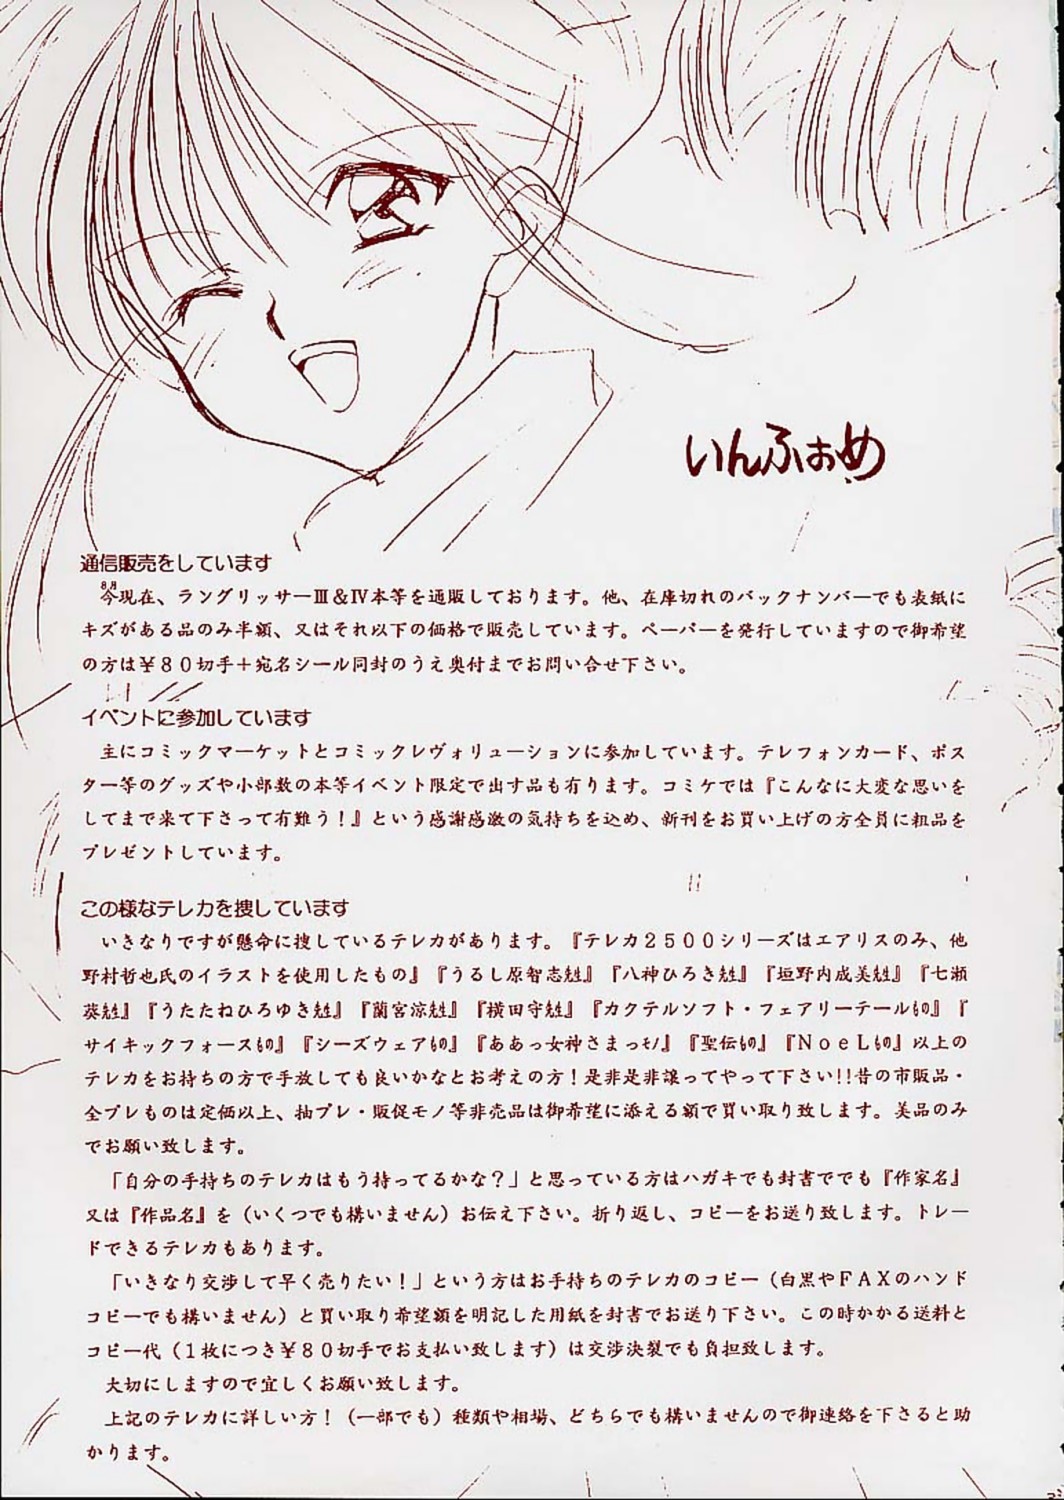 いんふぉめ
通信販売をしています
8.8
今現在、ラングリッサーⅢ&Ⅳ本等を通販しております。他、在庫切れのバックナンバーでも表紙に
キズがある品のみ半額、又はそれ以下の価格で販売しています。ペーパーを発行していますので御希望
の方は¥80切手+宛名シール同封のうえ奥付までお問い合せ下さい。
イベントに参加しています
主にコミックマーケットとコミックレヴォリューションに参加しています。テレフォンカード、ポス
ター等のグッズや小部数の本等イベント限定で出す品も有ります。コミケでは『こんなに大変な思いを
してまで来て下さって有難う!』という感謝感激の気持ちを込め、新刊をお買い上げの方全員に粗品を
プレゼントしています。
この様なテレカを捜しています
いきなりですが懸命に捜しているテレカがあります。『テレカ2500シリーズはエアリスのみ、他
野村哲也氏のイラストを使用したもの』『うるし原智志甡』『八神ひろき甡』『垣野内成美甡』『七瀬
葵甡』『うたたねひろゆき甡』『蘭宮涼甡』『横田守甡』『カクテルソフト・フェアリーテールもの』『
サイキックフォースもの』『シーズウェアもの』『ああっ女神さまっモノ』『聖伝もの』『NoeLもの』以上の
テレカをお持ちの方で手放しても良いかなとお考えの方!是非是非譲ってやって下さい!!昔の市販品・
全プレものは定価以上、抽プレ・販促モノ等非売品は御希望に添える額で買い取り致します。美品のみ
でお願い致します。
「自分の手持ちのテレカはもう持ってるかな?」と思っている方はハガキでも封書ででも『作家名』
又は『作品名』を(いくつでも構いません)お伝え下さい。折り返し、コピーをお送り致します。トレー
ドできるテレカもあります。
「いきなり交渉して早く売りたい!」という方はお手持ちのテレカのコピー(白黒やFAXのハンド
コピーでも構いません)と買い取り希望額を明記した用紙を封書でお送り下さい。この時かかる送料と
コピー代(1枚につき¥80切手でお支払い致します)は交渉決裂でも負担致します。
大切にしますので宜しくお願い致します。
上記のテレカに詳しい方!(一部でも)種類や相場、どちらでも構いませんので御連絡を下さると助
かります。